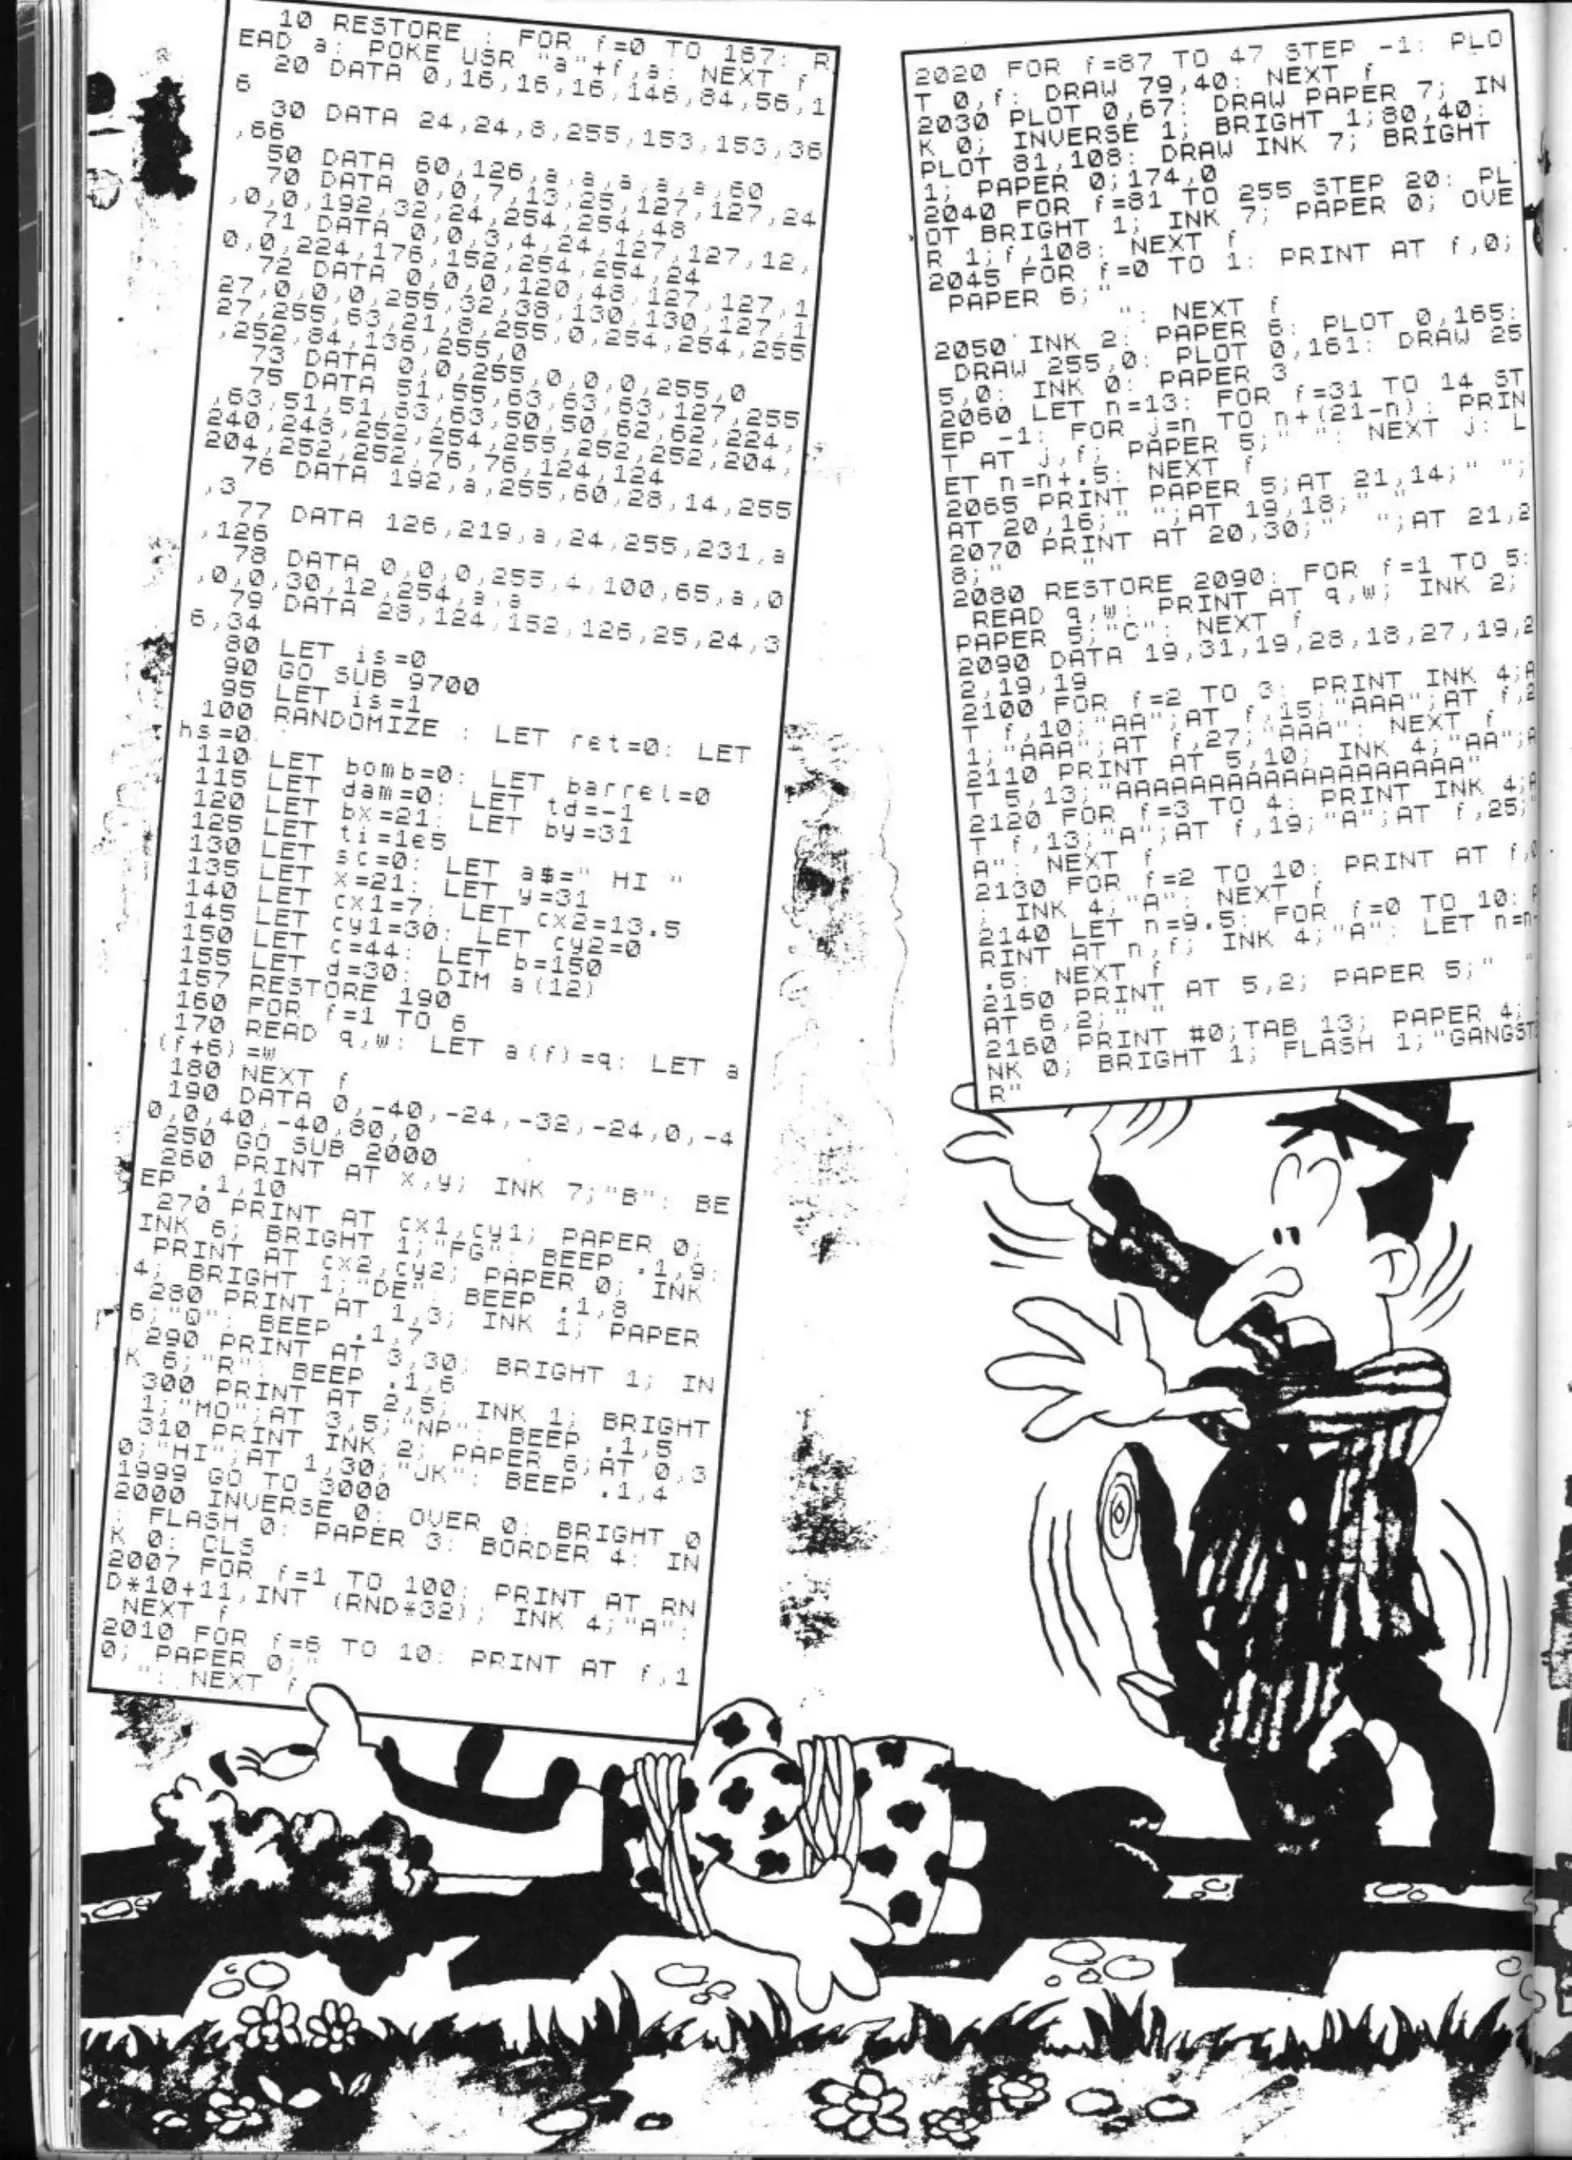 10 RESTORE : FOR f=0 TO 167: R
EAD a: POKE USR "a"+f,a: NEXT f
20 DATA 0,16,16,16,146,84,56,1
6
30 DATA 24,24,8,255,153,153,36
,66
50 DATA 60,126,a,a,a,a,a,60
70 DATA 0,0,7,13,25,127,127,24
,0,0,192,32,24,254,254,48
71 DATA 0,0,3,4,24,127,127,12,
0,0,224,176,152,254,254,24
72 DATA 0,0,0,120,48,127,127,1
27,0,0,0,255,32,38,130,130,127,1
27,255,63,21,8,255,0,254,254,255
,252,84,136,255,0
73 DATA 0,0,255,0,0,0,255,0
75 DATA 51,55,63,63,63,127,255
,63,51,51,63,63,50,50,62,62,224,
240,248,252,254,255,252,252,204,
204,252,252,76,76,124,124
76 DATA 192,a,255,60,28,14,255
,3
77 DATA 126,219,a,24,255,231,a
,126
78 DATA 0,0,0,255,4,100,65,a,0
,0,0,30,12,254,a,a
79 DATA 28,124,152,126,25,24,3
6,34
80 LET is=0
90 GO SUB 9700
95 LET is=1
100 RANDOMIZE : LET ret=0: LET
hs=0
110 LET bomb=0: LET barrel=0
115 LET dam=0: LET td=-1
120 LET bx=21: LET by=31
125 LET ti=1e5
130 LET sc=0: LET a$=" HI "
135 LET x=21: LET y=31
140 LET cx1=7: LET cx2=13.5
145 LET cy1=30: LET cy2=0
150 LET c=44: LET b=150
155 LET d=30: DIM a(12)
157 RESTORE 190
160 FOR f=1 TO 6
170 READ q,w: LET a(f)=q: LET a
(f+6)=w
180 NEXT f
190 DATA 0,-40,-24,-32,-24,0,-4
0,0,40,-40,80,0
250 GO SUB 2000
260 PRINT AT x,y; INK 7;"B": BE
EP .1,10
270 PRINT AT cx1,cy1; PAPER 0;
INK 6; BRIGHT 1;"FG": BEEP .1,9:
PRINT AT cx2,cy2; PAPER 0; INK
4; BRIGHT 1;"DE": BEEP .1,8
280 PRINT AT 1,3; INK 1; PAPER
6;"Q": BEEP .1,7
290 PRINT AT 3,30; BRIGHT 1; IN
K 6;"R": BEEP .1,6
300 PRINT AT 2,5; INK 1; BRIGHT
1;"MO";AT 3,5;"NP": BEEP .1,5
310 PRINT INK 2; PAPER 6;AT 0,3
0;"HI";AT 1,30;"JK": BEEP .1,4
1999 GO TO 3000
2000 INVERSE 0: OVER 0: BRIGHT 0
: FLASH 0: PAPER 3: BORDER 4: IN
K 0: CLS
2007 FOR f=1 TO 100: PRINT AT RN
D*10+11,INT (RND*32); INK 4;"A":
NEXT f
2010 FOR f=6 TO 10: PRINT AT f,1
0; PAPER 0;"
": NEXT f
2020 FOR f=87 TO 47 STEP -1: PLO
T 0,f: DRAW 79,40: NEXT f
2030 PLOT 0,67: DRAW PAPER 7; IN
K 0; INVERSE 1; BRIGHT 1;80,40:
PLOT 81,108: DRAW INK 7; BRIGHT
1; PAPER 0;174,0
2040 FOR f=81 TO 255 STEP 20: PL
OT BRIGHT 1; INK 7; PAPER 0; OVE
R 1;f,108: NEXT f
2045 FOR f=0 TO 1: PRINT AT f,0;
PAPER 6;"
": NEXT f
2050 INK 2: PAPER 6: PLOT 0,165:
DRAW 255,0: PLOT 0,161: DRAW 25
5,0: INK 0: PAPER 3
2060 LET n=13: FOR f=31 TO 14 ST
EP -1: FOR j=n TO n+(21-n): PRIN
T AT j,f; PAPER 5;" ": NEXT j: L
ET n=n+.5: NEXT f
2065 PRINT PAPER 5;AT 21,14;" ";
AT 20,16;" ";AT 19,18;" "
2070 PRINT AT 20,30;"  ";AT 21,2
8;"    "
2080 RESTORE 2090: FOR f=1 TO 5:
READ q,w: PRINT AT q,w; INK 2;
PAPER 5;"C": NEXT f
2090 DATA 19,31,19,28,18,27,19,2
2,19,19
2100 FOR f=2 TO 3: PRINT INK 4;A
T f,10;"AA";AT f,15;"AAA";AT f,2
1;"AAA";AT f,27;"AAA": NEXT f
2110 PRINT AT 5,10; INK 4;"AA";A
T 5,13;"AAAAAAAAAAAAAAAAAAA"
2120 FOR f=3 TO 4: PRINT INK 4;A
T f,13;"A";AT f,19;"A";AT f,25;"
A": NEXT f
2130 FOR f=2 TO 10: PRINT AT f,0
; INK 4;"A": NEXT f
2140 LET n=9.5: FOR f=0 TO 10: P
RINT AT n,f; INK 4;"A": LET n=n-
.5: NEXT f
2150 PRINT AT 5,2; PAPER 5;"  "
AT 6,2;" "
2160 PRINT #0;TAB 13; PAPER 4;
NK 0; BRIGHT 1; FLASH 1;"GANGSTE
R"